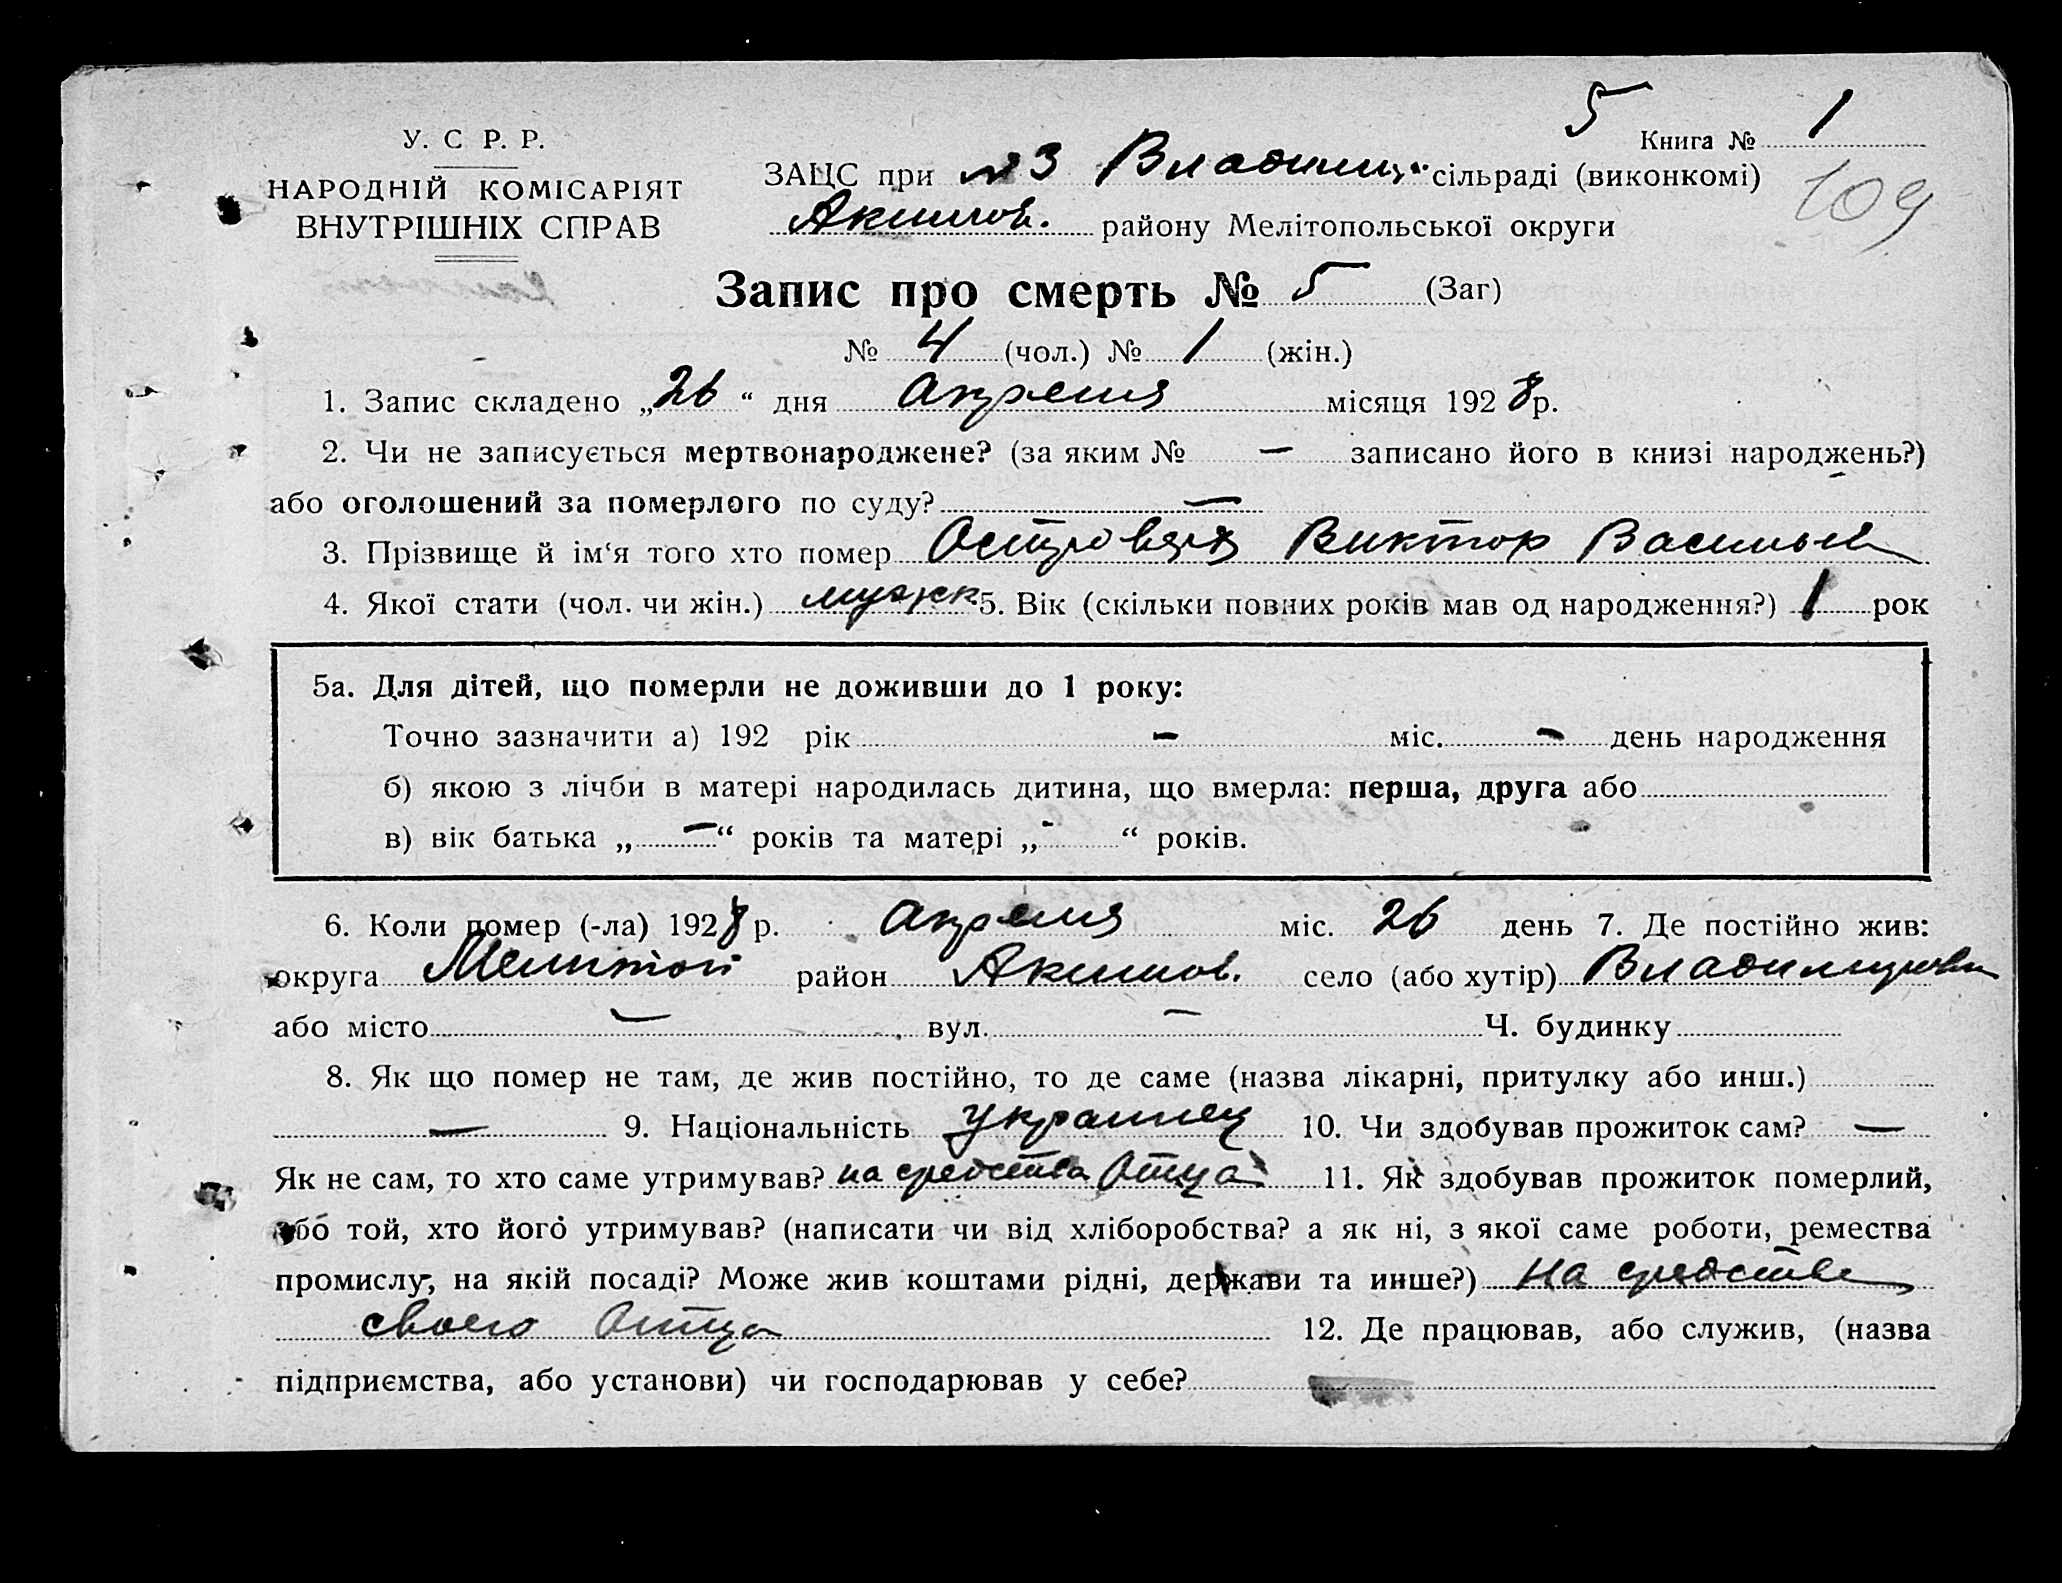 5
Книга № 1
У. С Р. Р.
109
НАРОДНІЙ КОМІСАРІЯТ
ВНУТРІШНІХ СПРАВ
ЗАЦС при № 3 Владимир сільраді (виконкомі)
Акимов. району Мелітопольської округи
Запис про смерть № 5 (Заг)
№ 4 (чол.) № 1 (жін.)
1. Запис складено „26“ дня Апреля місяця 1928 р.
2. Чи не записується мертвонароджене? (за яким № — записано його в книзі народжень?)
або оголошений за померлого по суду? —
3. Прізвище й ім‘я того хто помер Виктор Васильев
4. Якої стати (чол. чи жін.) мужк 5. Вік (скільки повних років мав од народження?) 1 рок
5а. Для дітей, що померли не доживши до 1 року:
Точно зазначити а) 192 рік — міс. — день народження
б) якою з лічби в матері народилась дитина, що вмерла: перша, друга або
в) вік батька „—“ років та матері „-“ років.
6. Коли помер (-ла) 1928 р. Апреля міс. 26 день 7. Де постійно жив:
округа Мелитоп район Акимов. село (або хутір) Владимировка
або місто — вул. — Ч. будинку
8. Як що помер не там, де жив постійно, то де саме (назва лікарні, притулку або инш.)
— 9. Національність Украинец 10. Чи здобував прожиток сам? —
Як не сам, то хто саме утримував? на средства Отца 11. Як здобував прожиток померлий,
або той, хто його утримував? (написати чи від хліборобства? а як ні, з якої саме роботи, ремества
промислу, на якій посаді? Може жив коштами рідні, держави та инше?) на средстве
своего Отца 12. Де працював, або служив, (назва
підприємства, або установи) чи господарював у себе?